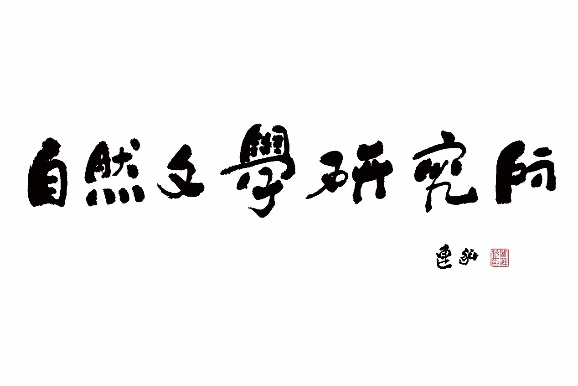 自然文學研究所